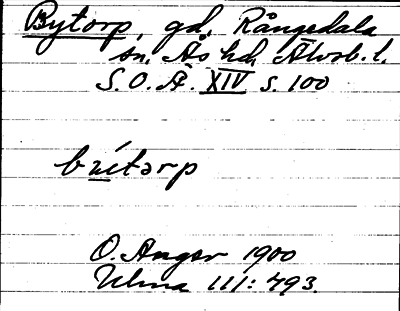 Bytorp, gd, Rångedala
sn, Ås hd, Älvsb. l.
S.O.Ä. XIV s. 100
O. Anger 1900
Ulma 111: 493.